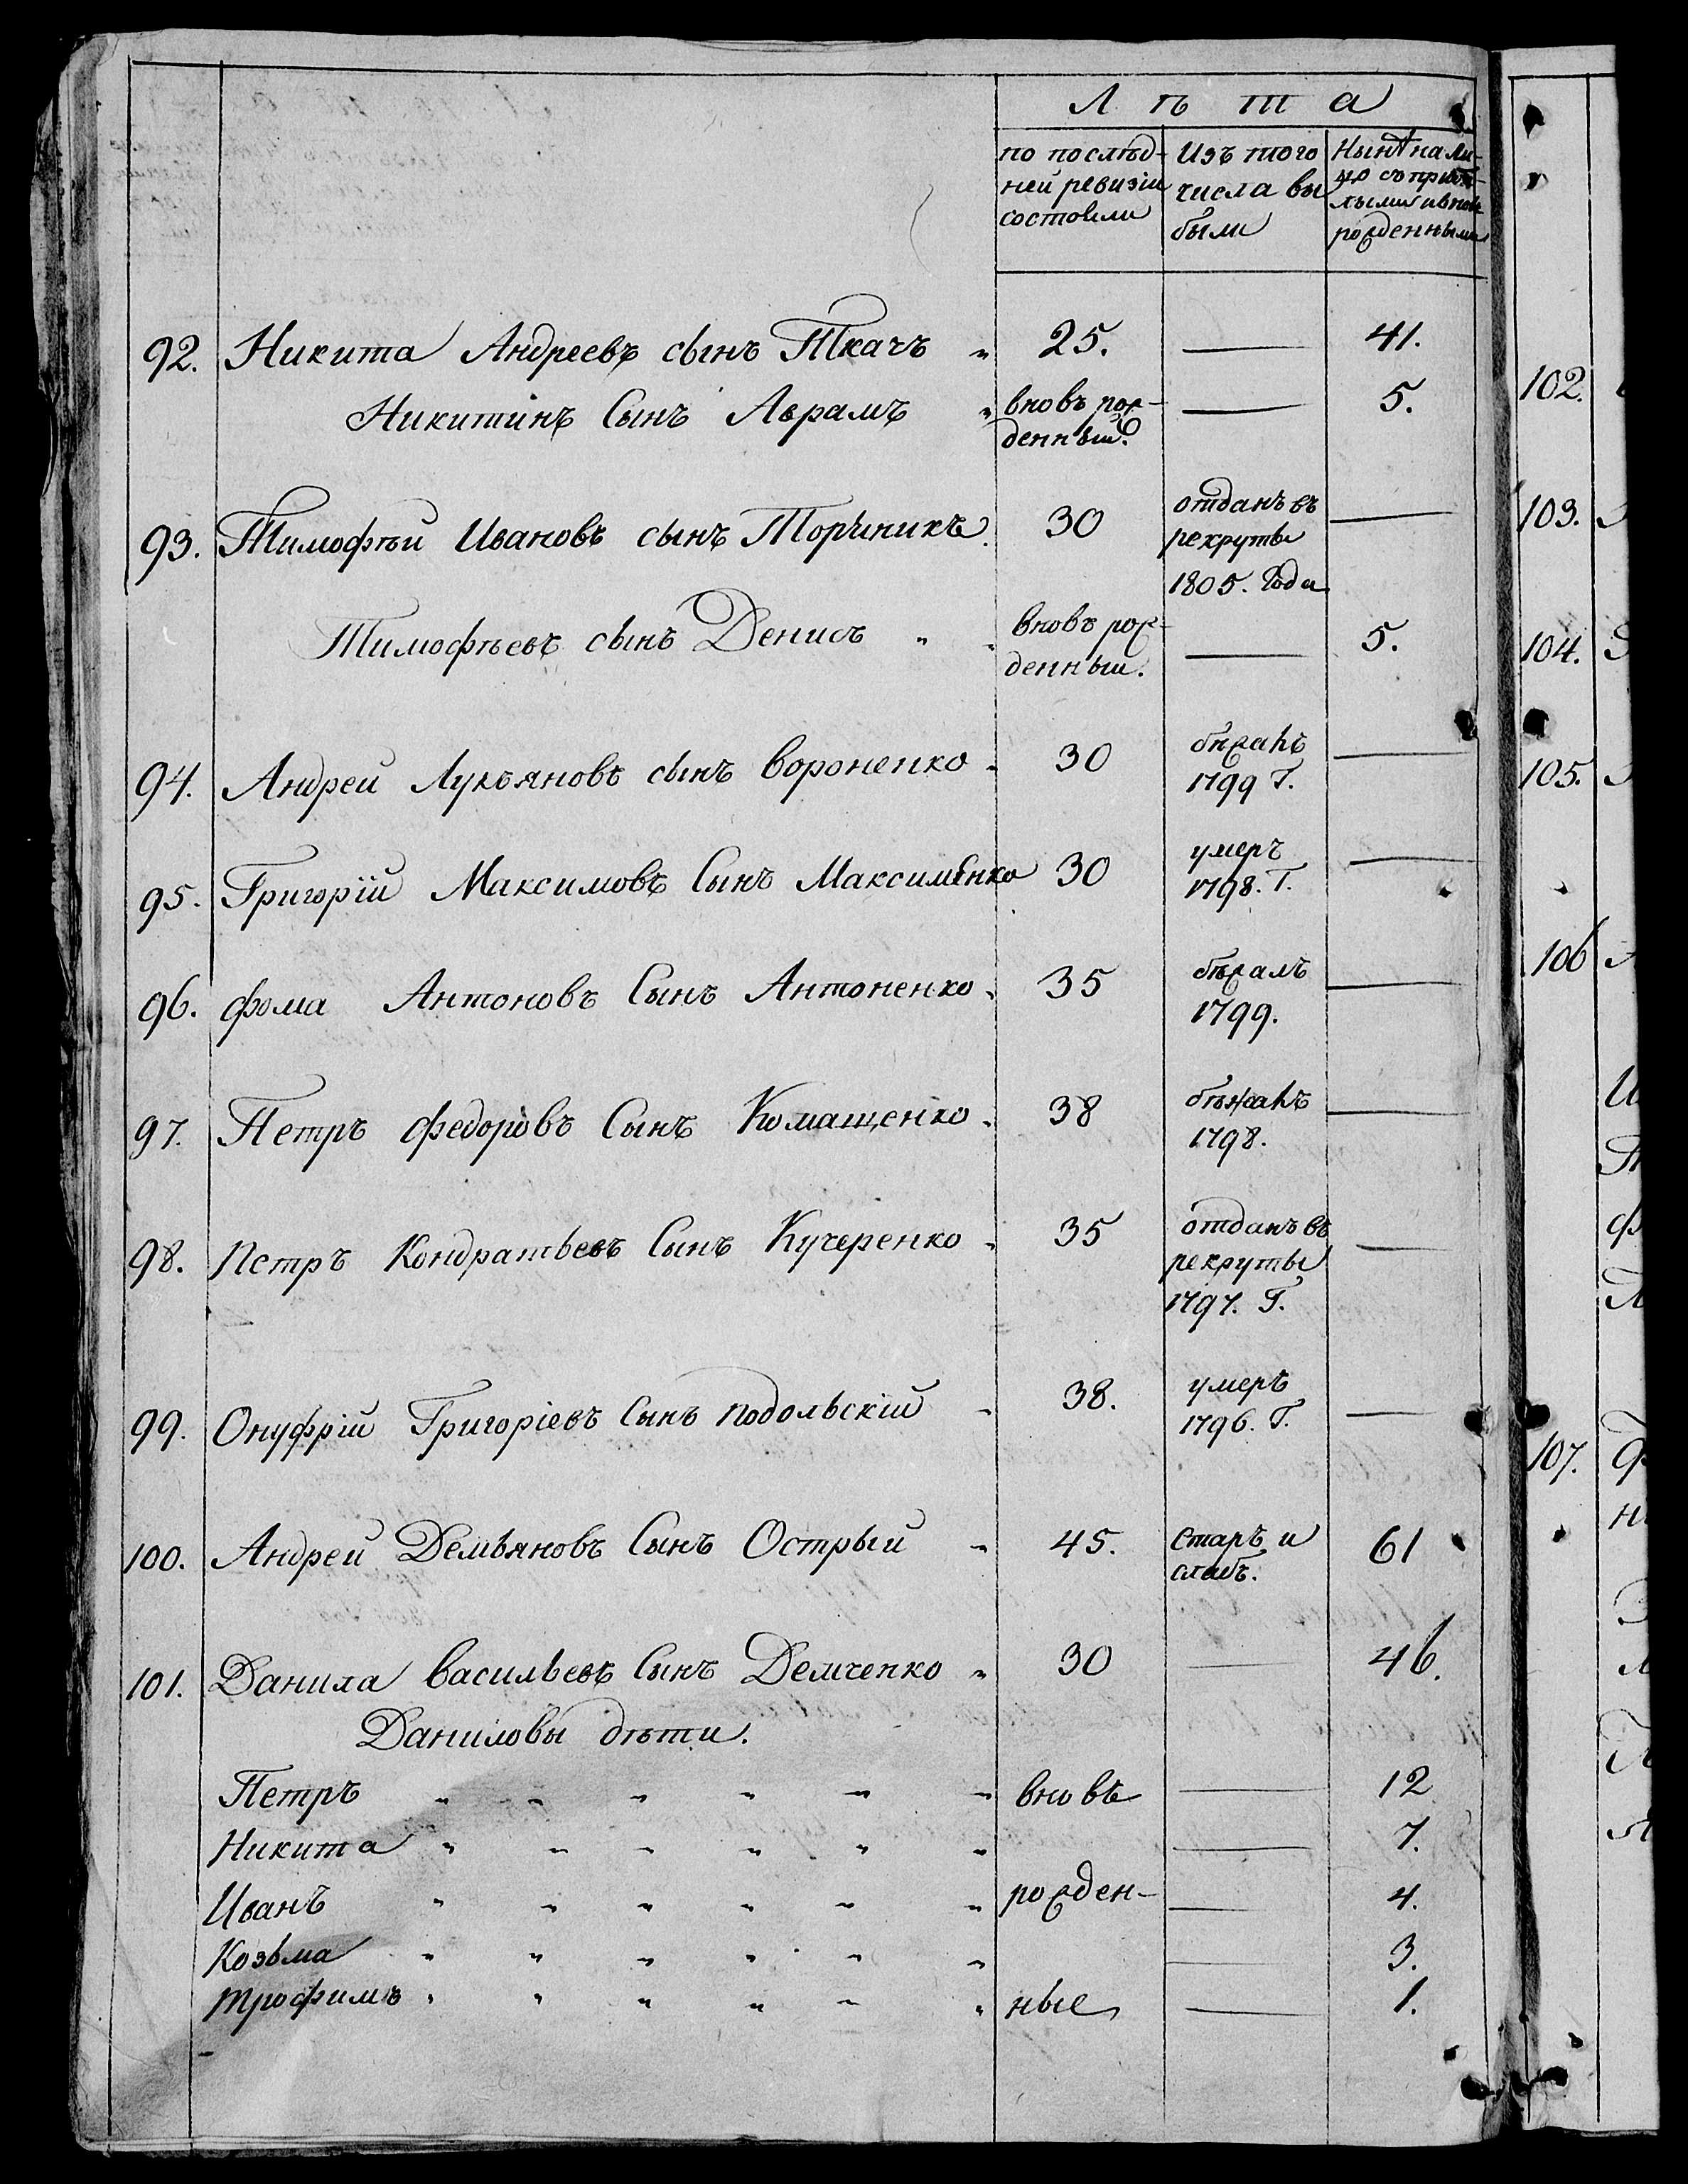 Лѣта
по послѣд-
ней ревизіи
состоыли
Изъ того
числа вы
были
Нынѣ на ли-
цо съ прибы-
лыми и вновь
рожденными
92. Никита Андреевъ сынъ Ткачъ 25. — 41.
Никитинъ Сынъ Аврамъ вновъ рож-
денный. — 5.
93. Тимофѣй Ивановъ сынъ Торчникъ 30 отданъ въ
рекруты
1805. Года —
Тимофѣевъ сынъ Денисъ вновъ рож-
денный. — 5.
94. Андрей Лукьяновъ сынъ Вороненко 30 бѣжалъ
1799 Г. —
95. Григорій Максимовъ Сынъ Максименко 30 умеръ
1798. Г. —
96. Фома Антоновъ Сынъ Антоненко 35 бѣжалъ
1799. —
97. Петръ Федоровъ Сынъ Комащенко 38 бѣжалъ
1798. —
98. Петръ Кондратьевъ Сынъ Кучеренко 35 отданъ въ
рекруты
1797. Г. —
99. Онуфрій Григоріевъ Сынъ Подольскій 38. умеръ
1796. Г. —
100. Андрей Демьяновъ Сынъ Острый 45. Старъ и
слабъ. 61
101. Данила Васильевъ Сынъ Демченко 30 — 46.
Даниловы дѣти.
Петръ вновъ — 12
Никита — 7.
Иванъ рожден- — 4.
Козьма — 3.
Трофимъ ные — 1.
102.
103.
104.
105.
106
107.